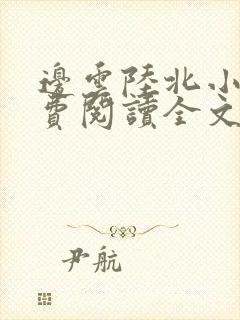 邊雲陸北小
費閱讀全文
尹航